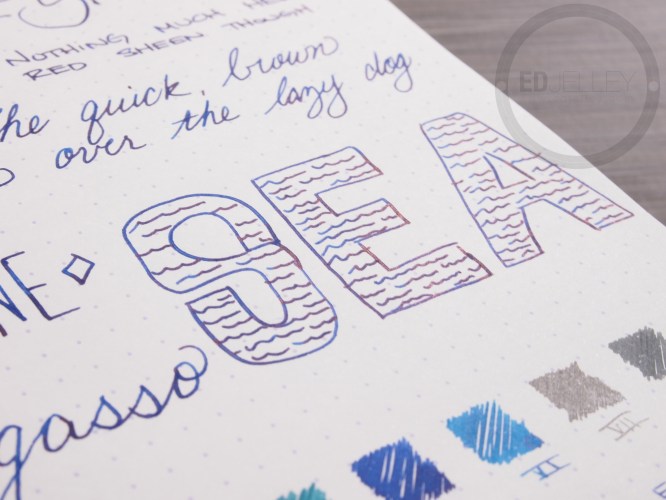 NOTHING MUCH HE
RED SHEEN THOUGH
the quick brown
over the lazy dog
SEA
NE
gasso
VI
VII
ED JELLEY